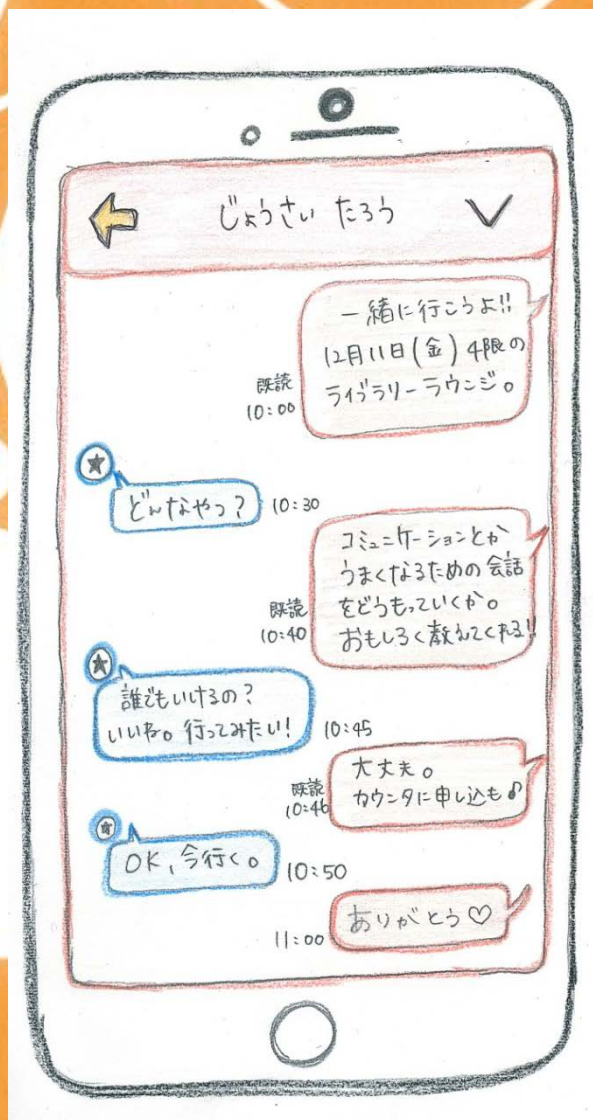 じょうさい たろう
一緒に行こうよ!!
12月11日(金)4限の
ライブラリーラウンジ。
既読
10:00
どんなやつ?
10:30
コミュニケーションとか
うまくなるための会話
をどうもっていくか。
おもしろく教えてくれる!!
既読
10:40
誰でもいけるの?
いいね。行ってみたい!
10:45
大丈夫。
カウンタに申し込も♪
既読
10:46
OK,今行く。
10:50
ありがとう♡
11:00